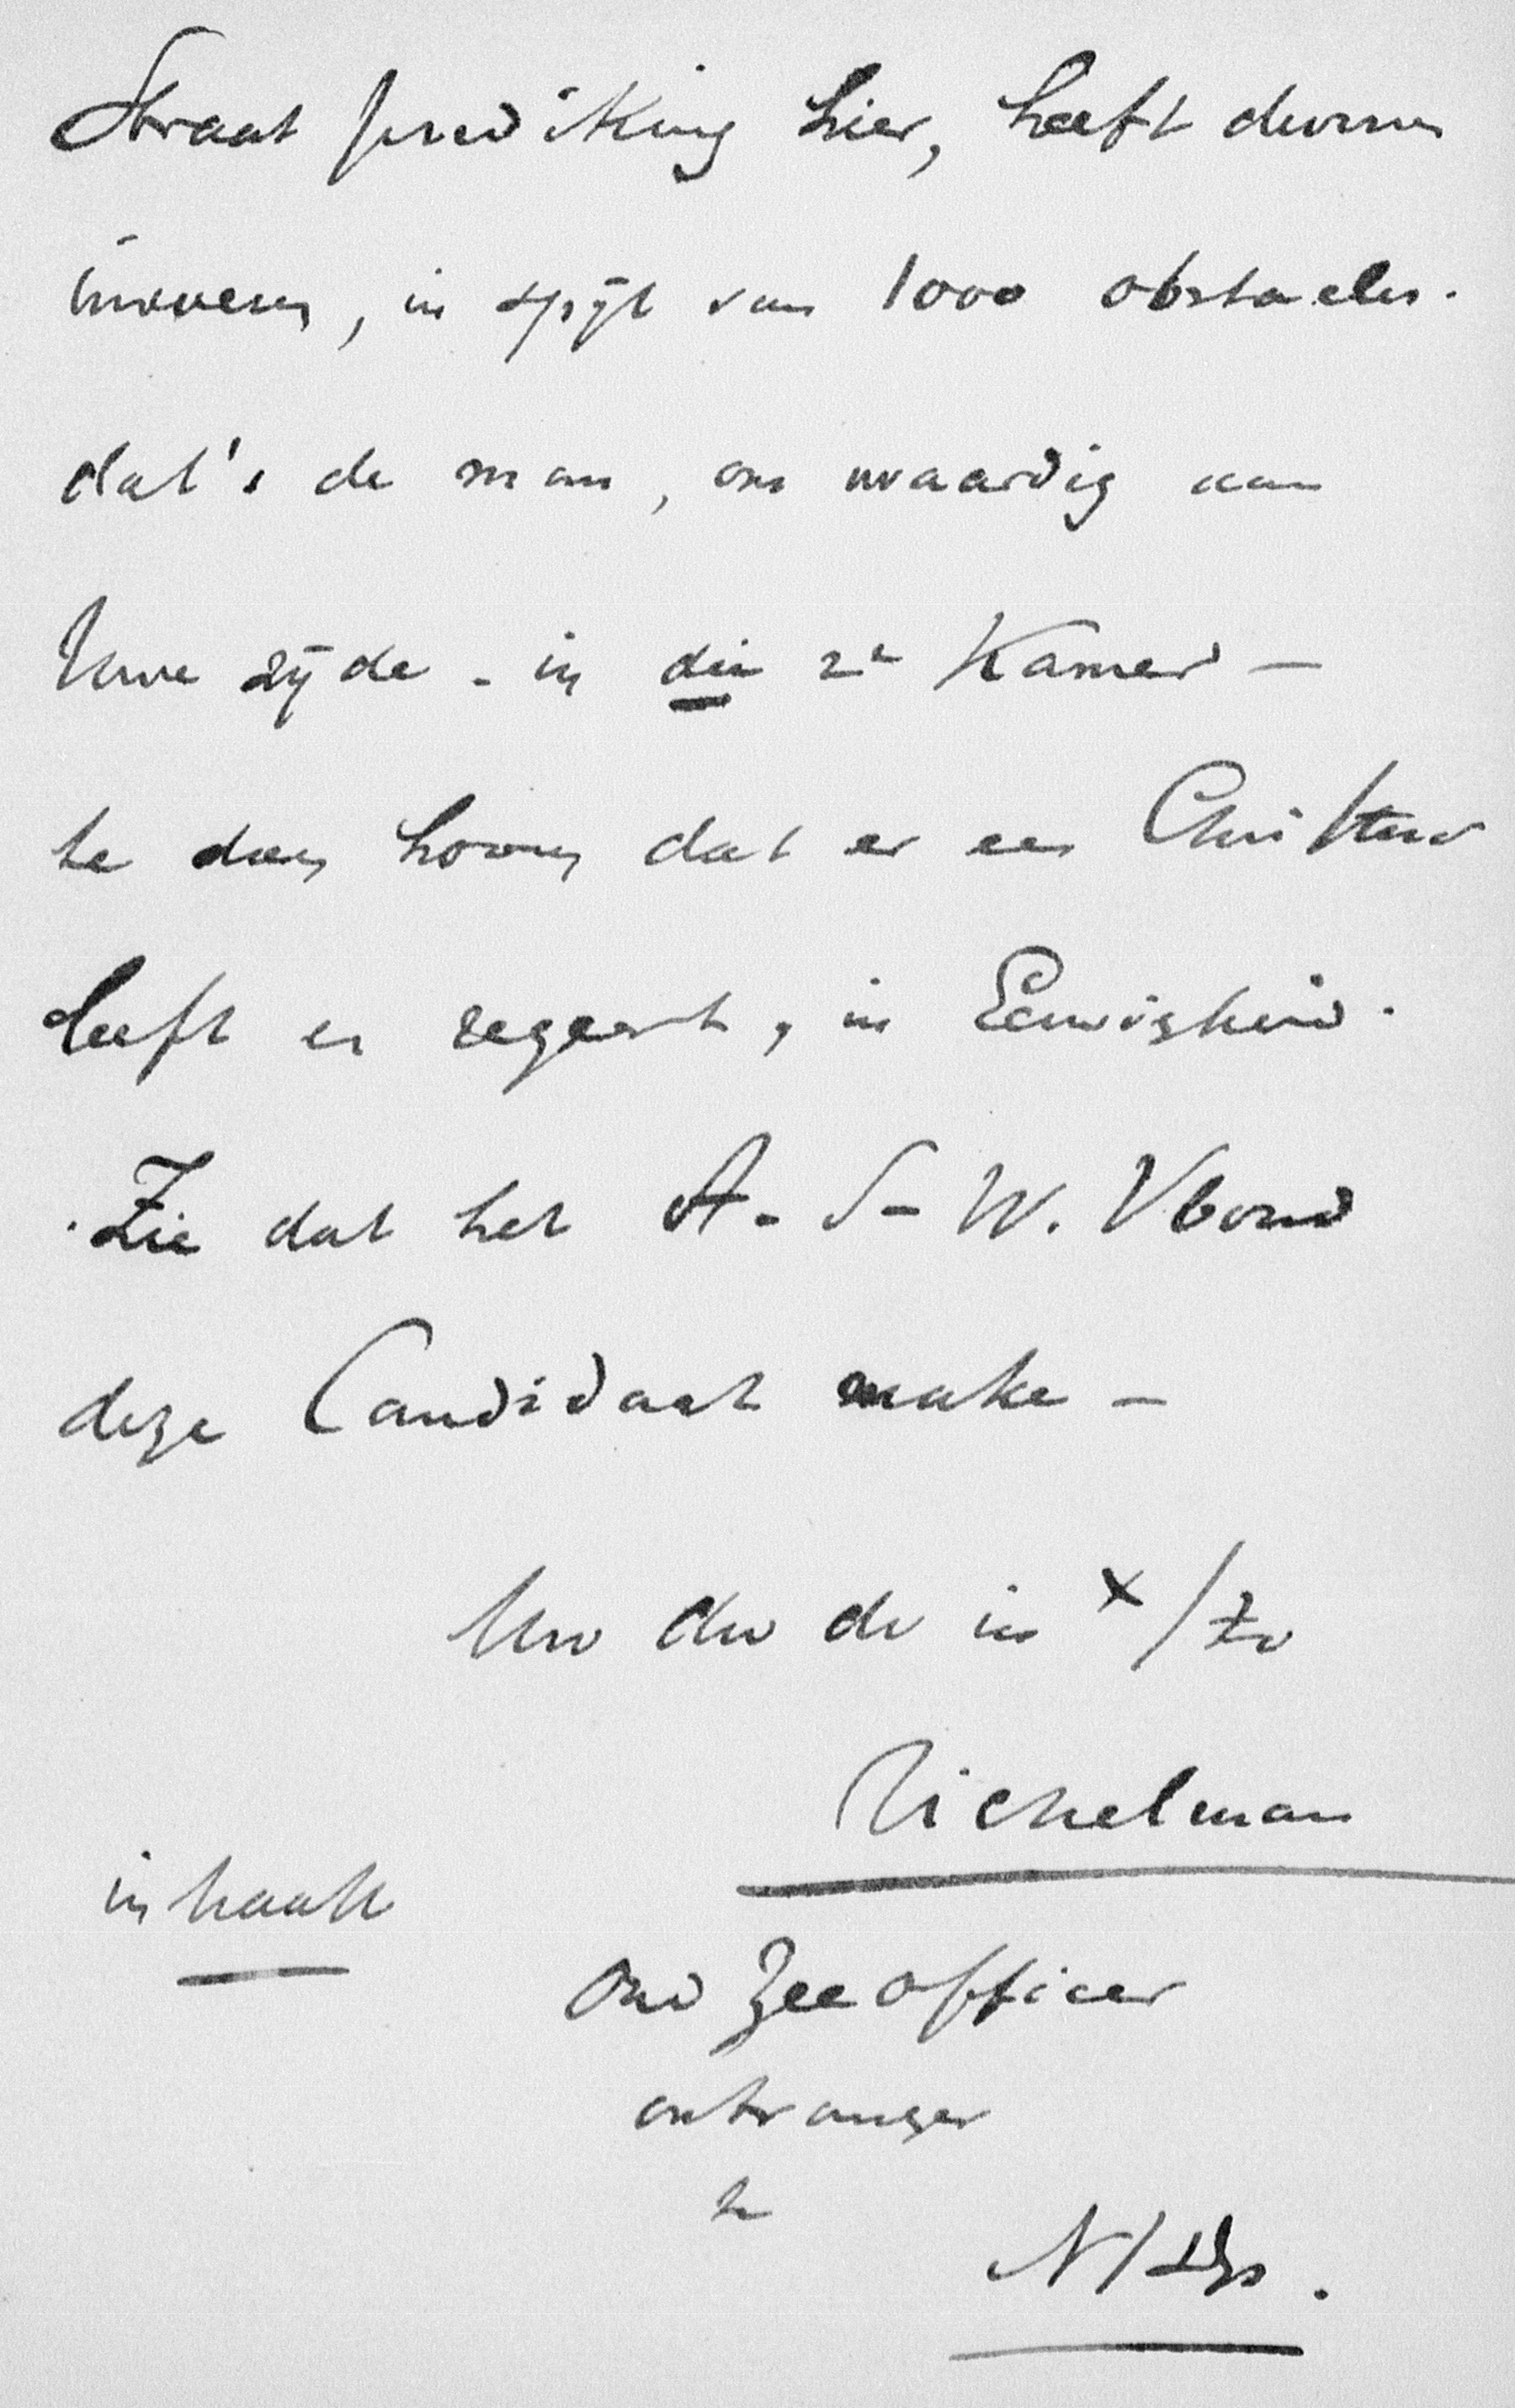 Straat prediking hier, heeft durven
invoeren, in spijt van 1000 obstacles.
dat's de man, om waardig aan
Uwe zijde - in die 2e Kamer -
te doen hooren dat er een Christus
leeft en regeert, in Eeuwigheid.
Zie dat het A-S-W. Vbond
deze Candidaat make -
Uw dw dr in X/
Richelman
in haast
Oud Zee officer
ontvanger
te